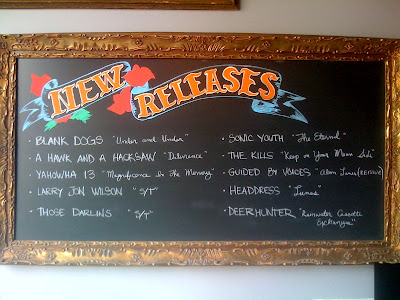 NEW RELEASES
• BLANK DOGS "Under and Under"
• A HAWK AND A HACKSAW "Deliverance"
• YAHOWHA 13 "Magnificence In The Memory"
• LARRY JON WILSON "S/T"
• THOSE DARLINS "S/T"
• SONIC YOUTH "The Eternal"
• THE KILLS "Keep on Your Mean Side"
• GUIDED BY VOICES "Alien Lanes (REISSUE)
• HEADDRESS "Lunes"
• DEERHUNTER "Rainwater Cassette
Exchange"